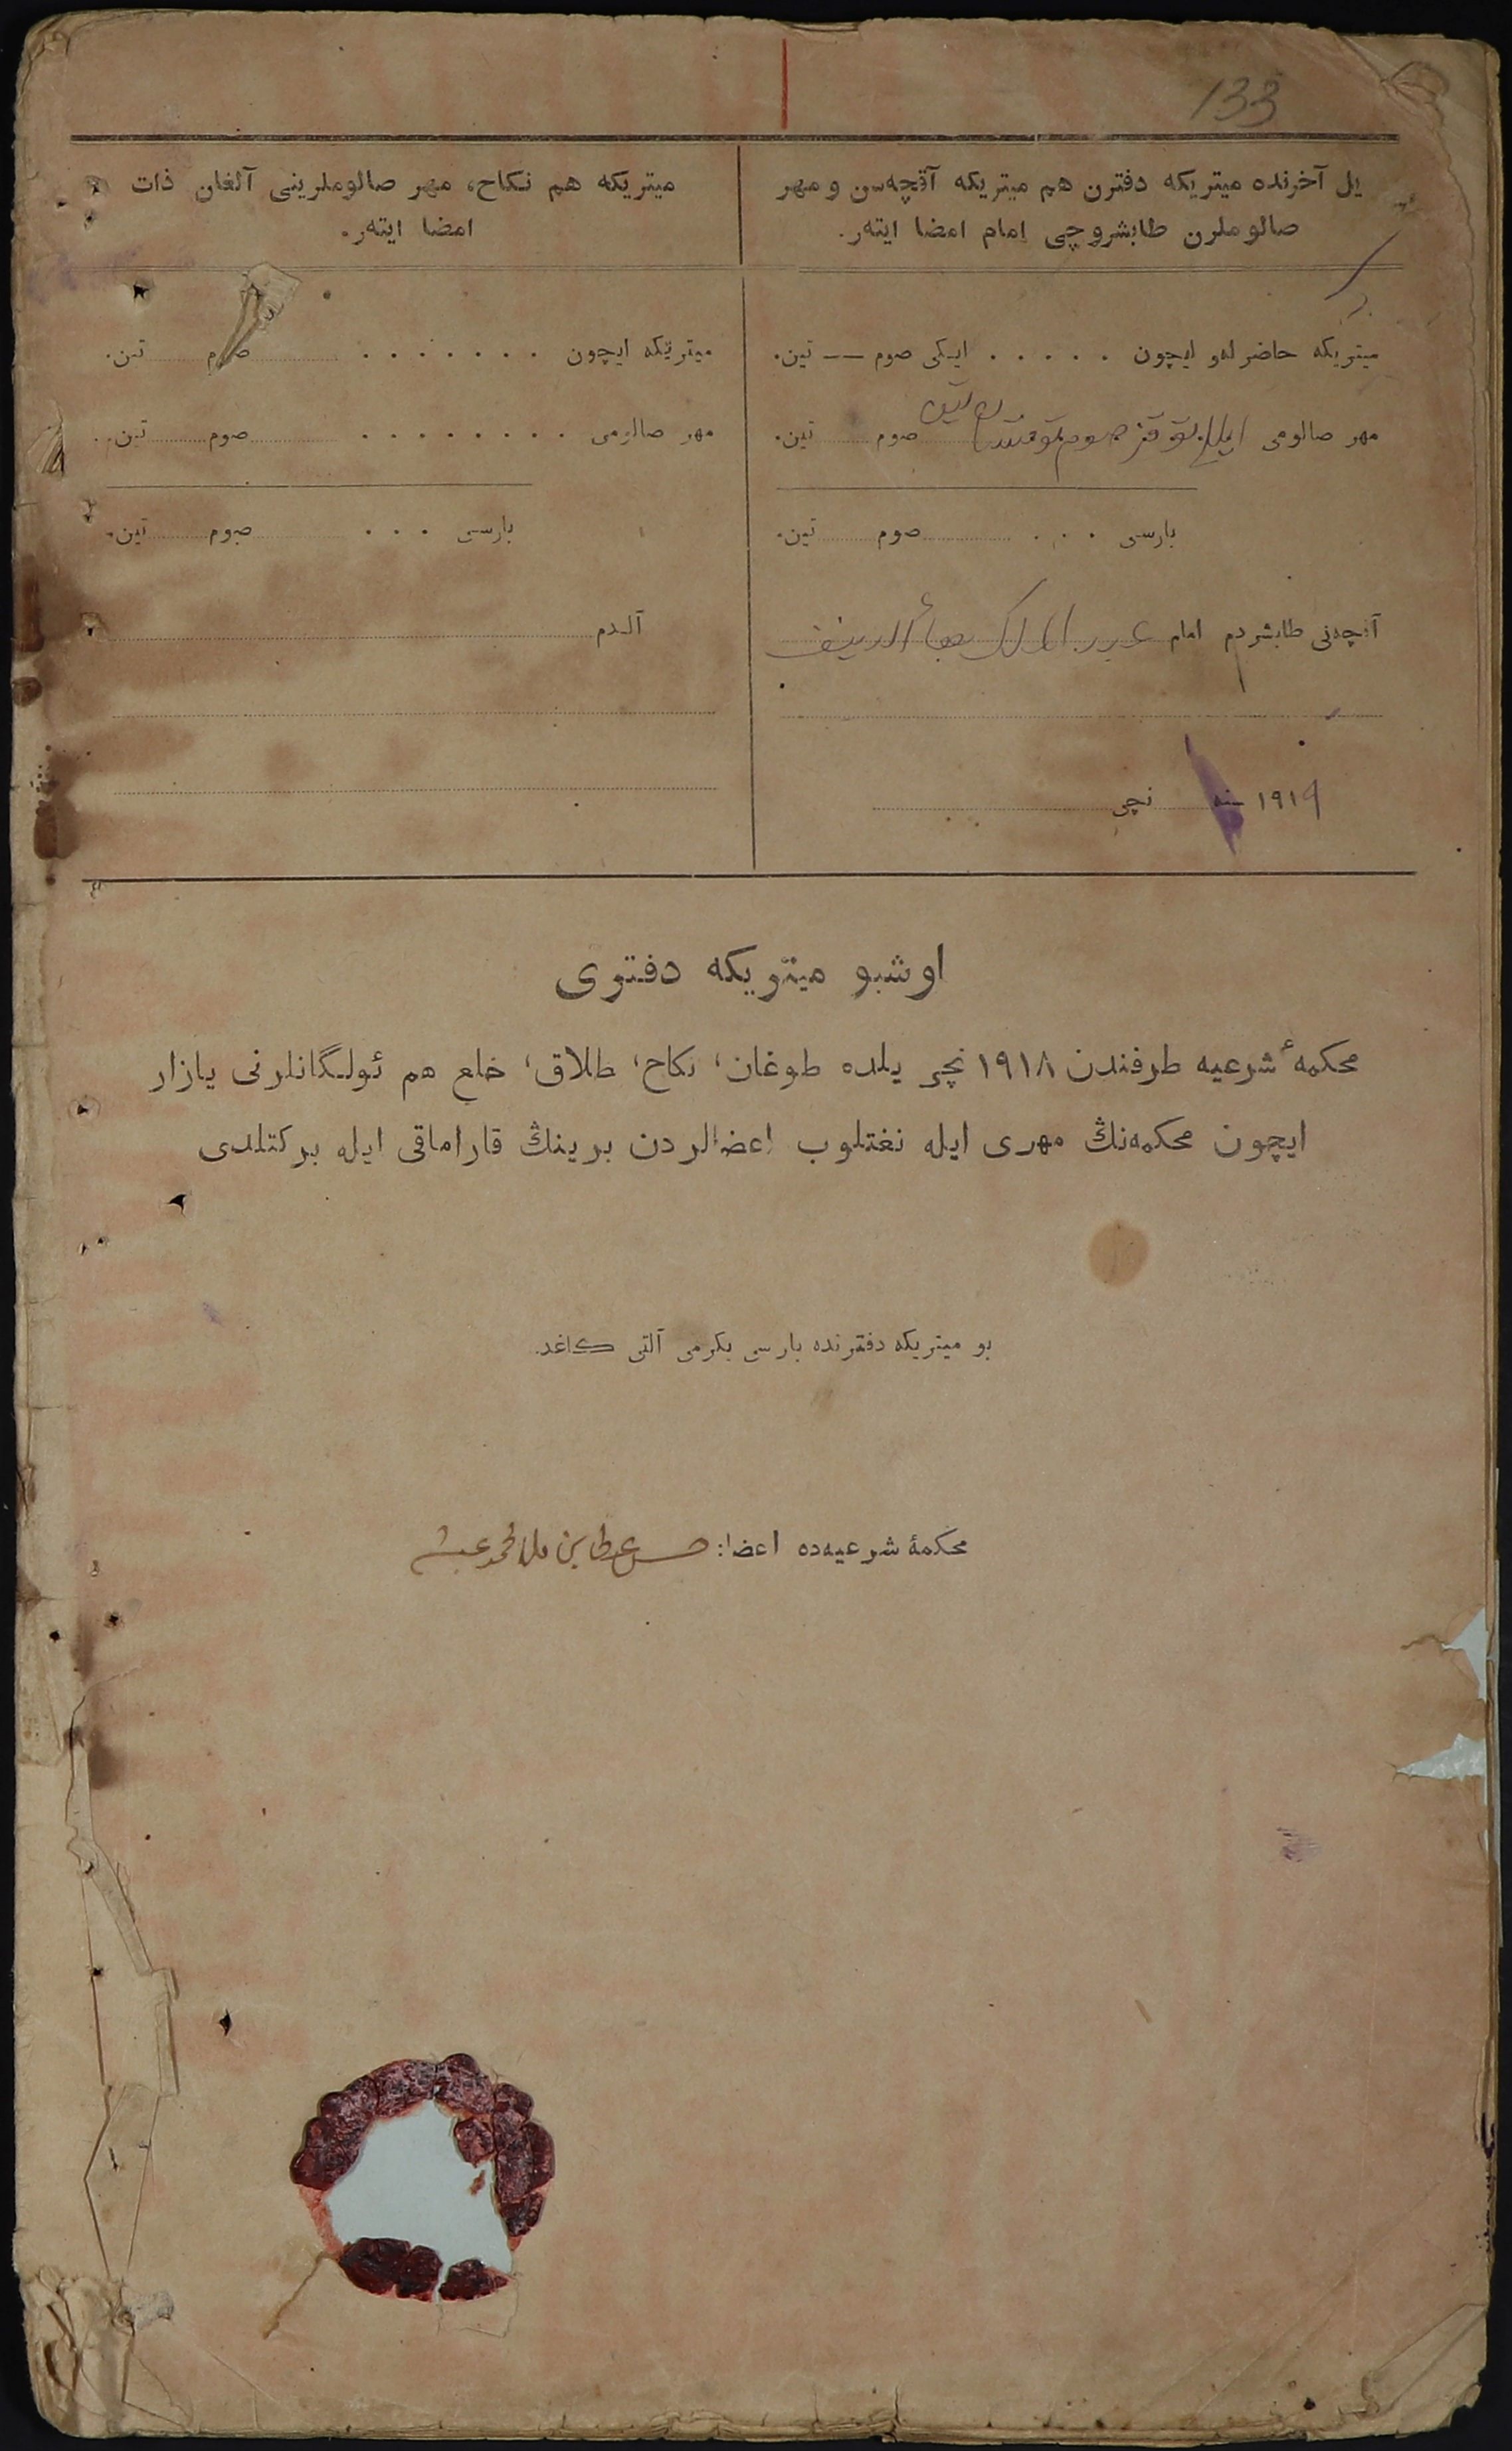 133
یل آخرنده میتریکه دفترن هم میتریکه آقچه‌سن و مهر
صالوملرن طابشروچی امام امضا ایته‌ر.
میتریکه حاضرله‌و ایچون . . . . . ایکی صوم —— تین.
مهر صالومی صوم تین.
بارسی . . . صوم تین.
آقچه‌نی طابشردم امام عبد الملك بهاء الدینف
۱۹۱۹ سنه نچی
میتریکه هم نکاح، مهر صالوملرینی آلغان ذات
امضا ایته‌ر.
میتریکه ایچون . . . . . . . صوم تین.
مهر صالومی . . . . . . . . صوم تین.
بارسی . . . صوم تین.
آلدم
اوشبو میتریکه دفتری
محکمهٔ شرعیه طرفندن ۱۹۱۸ نچی یلده طوغان، نکاح، طلاق، خلع هم ئولگانلرنی یازار
ایچون محکمه‌نڭ مهری ایله نغتلوب اعضالردن برینڭ قاراماقی ایله برکتلدی
بو میتریکه دفترنده بارسی یکرمی آلتی کاغد.
محکمهٔ شرعیه‌ده اعضا: